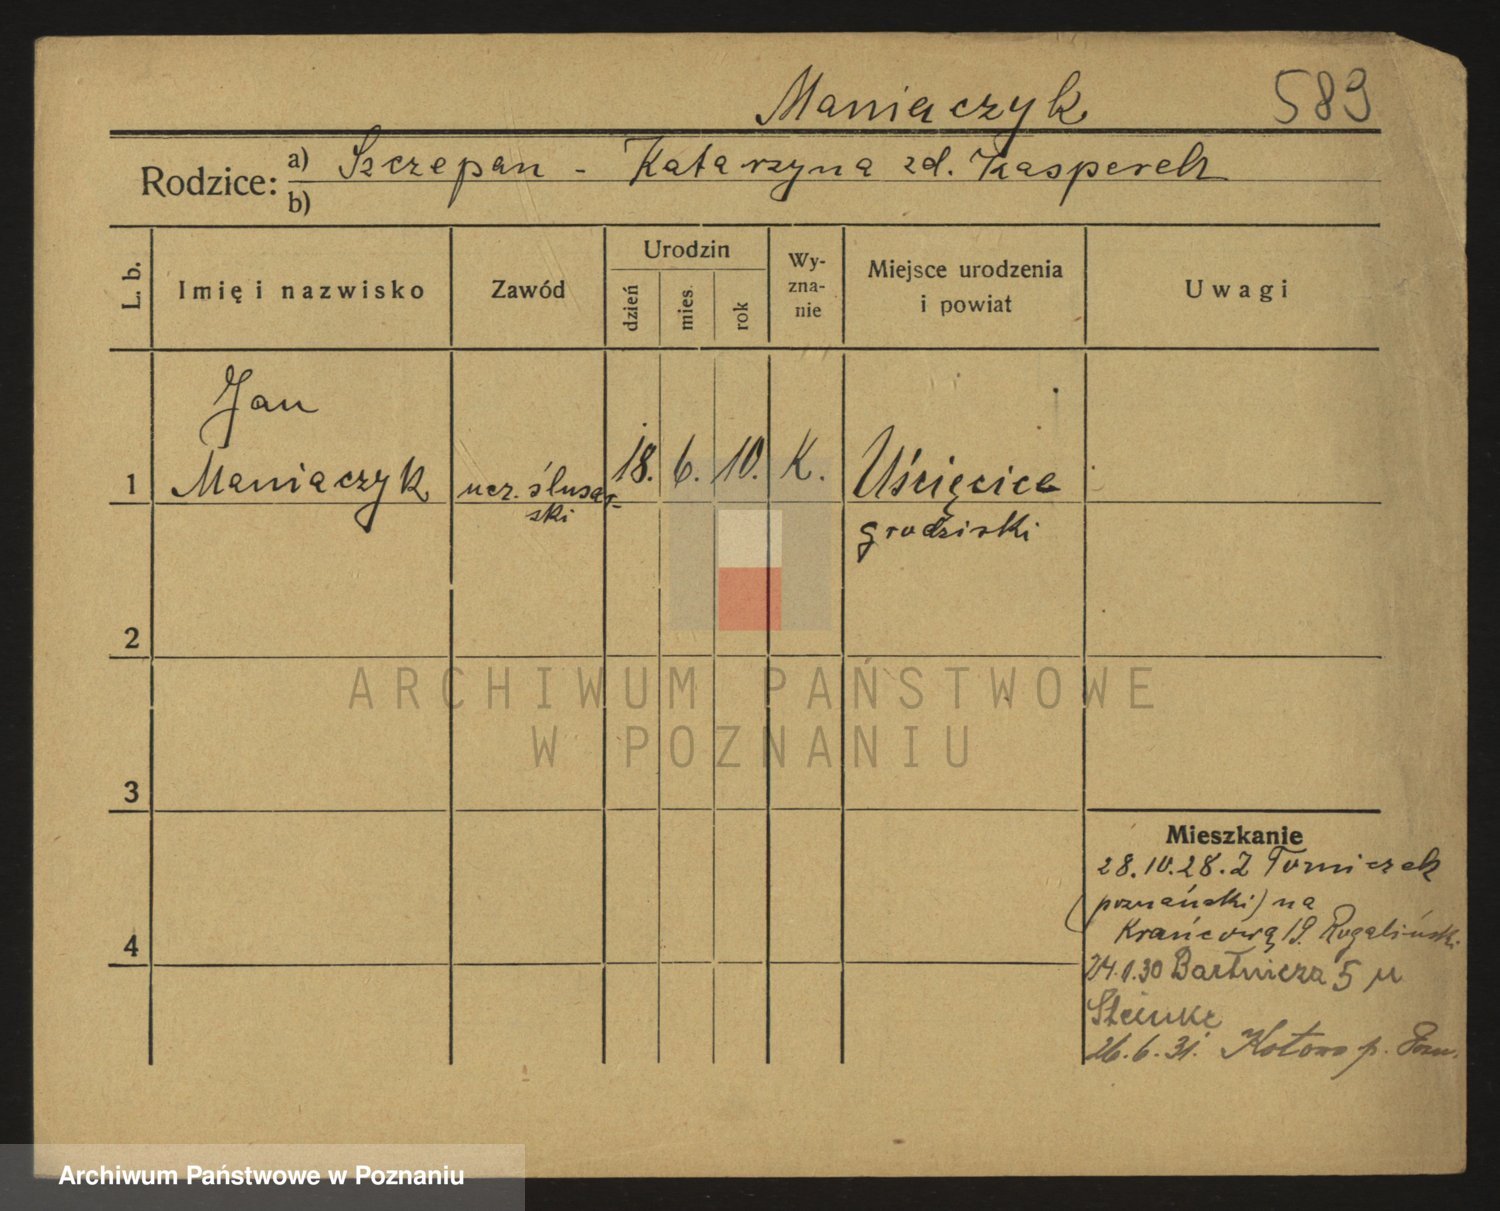 Maniaczyk 589
Rodzice: a) Szczepan - Katarzyna zd. Kasperek
b)
L. b. Imię i nazwisko Zawód Urodzin dzień mies. rok Wyznanie Miejsce urodzenia i powiat Uwagi
Jan
1 Maniaczyk ucz. ślusar- 18. 6. 10. K. Uścięcice
ski grodziski
2
ARCHIWUM PAŃSTWOWE
W POZNANIU
3
Mieszkanie
28.10.28. Z Tomiczek
(poznański) na
4 Krańcową 19. Rogaliński
24.1.30 Bartnicza 5 u
26.6.31. Kotowo p. Pozn.
Archiwum Państwowe w Poznaniu